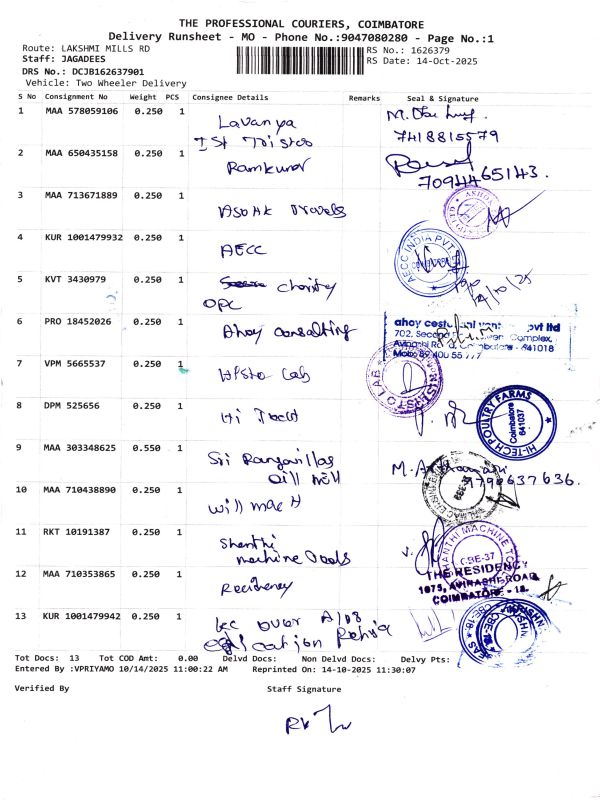 THE PROFESSIONAL COURIERS, COIMBATORE
Delivery Runsheet - MO - Phone No.:9047080280 - Page No.:1
Route: LAKSHMI MILLS RD
RS No.: 1626379
Staff: JAGADEES
RS Date: 14-Oct-2025
DRS No.: DCJB162637901
Vehicle: Two Wheeler Delivery
S No Consignment No Weight PCS Consignee Details Remarks Seal & Signature
1 MAA 578059106 0.250 1 Lavanya
7418815579
2 MAA 650435158 0.250 1 Ramkumar
7094465143.
3 MAA 713671889 0.250 1 Travels
ASHOK
4 KUR 1001479932 0.250 1 AECC
AECC INDIA PVT
14/10/25
5 KVT 3430979 0.250 1 charity
OPC
6 PRO 18452026 0.250 1 Ahoy consulting
ahoy pvt ltd
702, Second Complex,
Avinashi Coimbatore - 641018
7 VPM 5665537 0.250 1 Lab
LAB
8 DPM 525656 0.250 1 Hi
HI-TECH POULTRY FARMS
Coimbatore
641037
9 MAA 303348625 0.550 1 Sri
9790637636.
10 MAA 710438890 0.250 1 will
11 RKT 10191387 0.250 1 Shanthi
machine Tools
SHANTHI MACHINE TOOLS
CBE-37
12 MAA 710353865 0.250 1 Recidency
THE RESIDENCY
1075, AVINASHI ROAD,
COIMBATORE - 18.
13 KUR 1001479942 0.250 1 over
CBE-18
Tot Docs: 13 Tot COD Amt: 0.00 Delvd Docs: Non Delvd Docs: Delvy Pts:
Entered By :VPRIYAMO 10/14/2025 11:00:22 AM Reprinted On: 14-10-2025 11:30:07
Verified By Staff Signature